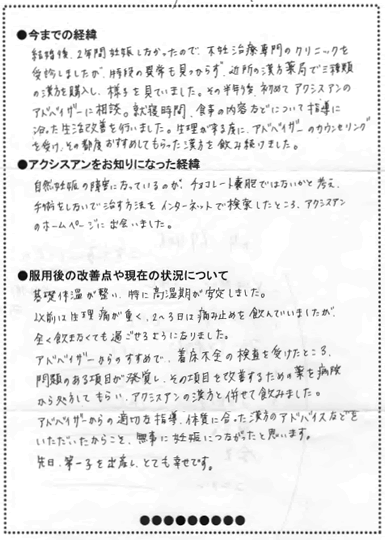 ●今までの経緯
結婚後、2年間妊娠しなかったので、不妊治療専門のクリニックを
受診しましたが、特段の異常も見つからず、近所の漢方薬局で三種類
の漢方を購入し、様子を見ていました。その半年後、初めてアクシスアンの
アドバイザーに相談。就寝時間、食事の内容などについて指導に
沿った生活改善を行いました。生理がする度に、アドバイザーのカウンセリング
を受け、その都度おすすめしてもらった漢方を飲み続けました。
●アクシスアンをお知りになった経緯
自然妊娠の障害になっているのが、チョコレート嚢胞ではないかと考え、
手術をしないで治す方法をインターネットで検索したところ、アクシスアン
のホームページに出会いました。
●服用後の改善点や現在の状況について
基礎体温が整い、特に高温期が安定しました。
以前は生理痛が重く、2〜3日は痛み止めを飲んでいましたが、
全く飲まなくても過ごせるようになりました。
アドバイザーからのすすめで、着床不全の検査を受けたところ、
問題のある項目が発覚し、その項目を改善するための薬を病院
から処方してもらい、アクシスアンの漢方と併せて飲みました。
アドバイザーからの適切な指導、体質に合った漢方のアドバイスなどを
いただいたからこそ、無事に妊娠につながったと思います。
先日、第一子を出産し、とても幸せです。